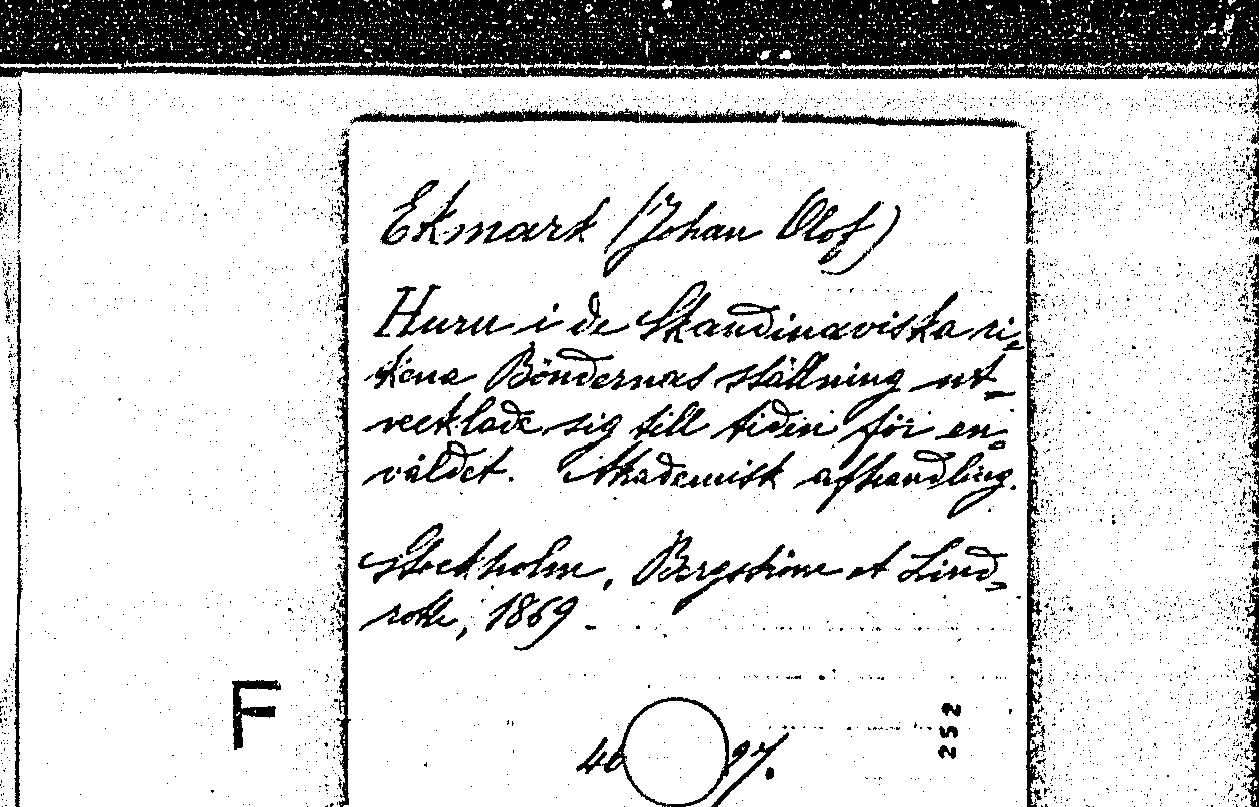 Ekmark (Johan Olof)
Huru i de Skandinaviska ri-
kena Böndernas ställning ut-
vecklade sig till tiden för en-
väldet. Akademisk afhandling.
Stockholm, Bergström et Lind-
roth, 1869.
F
252